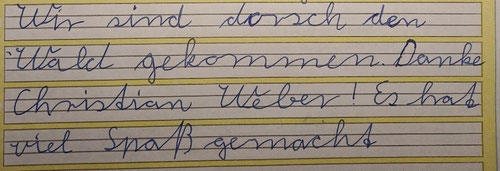 Wir sind dorsch den
Wald gekommen. Danke
Christian Weber! Es hat
viel Spaß gemacht